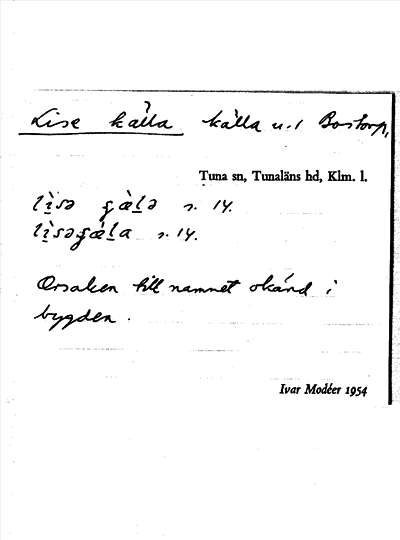 Lise källa källa u.t Bostorp,
Tuna sn, Tunaläns hd, Klm. l.
s. 14.
s. 14.
Orsaken till namnet okänd i
bygden.
Ivar Modéer 1954